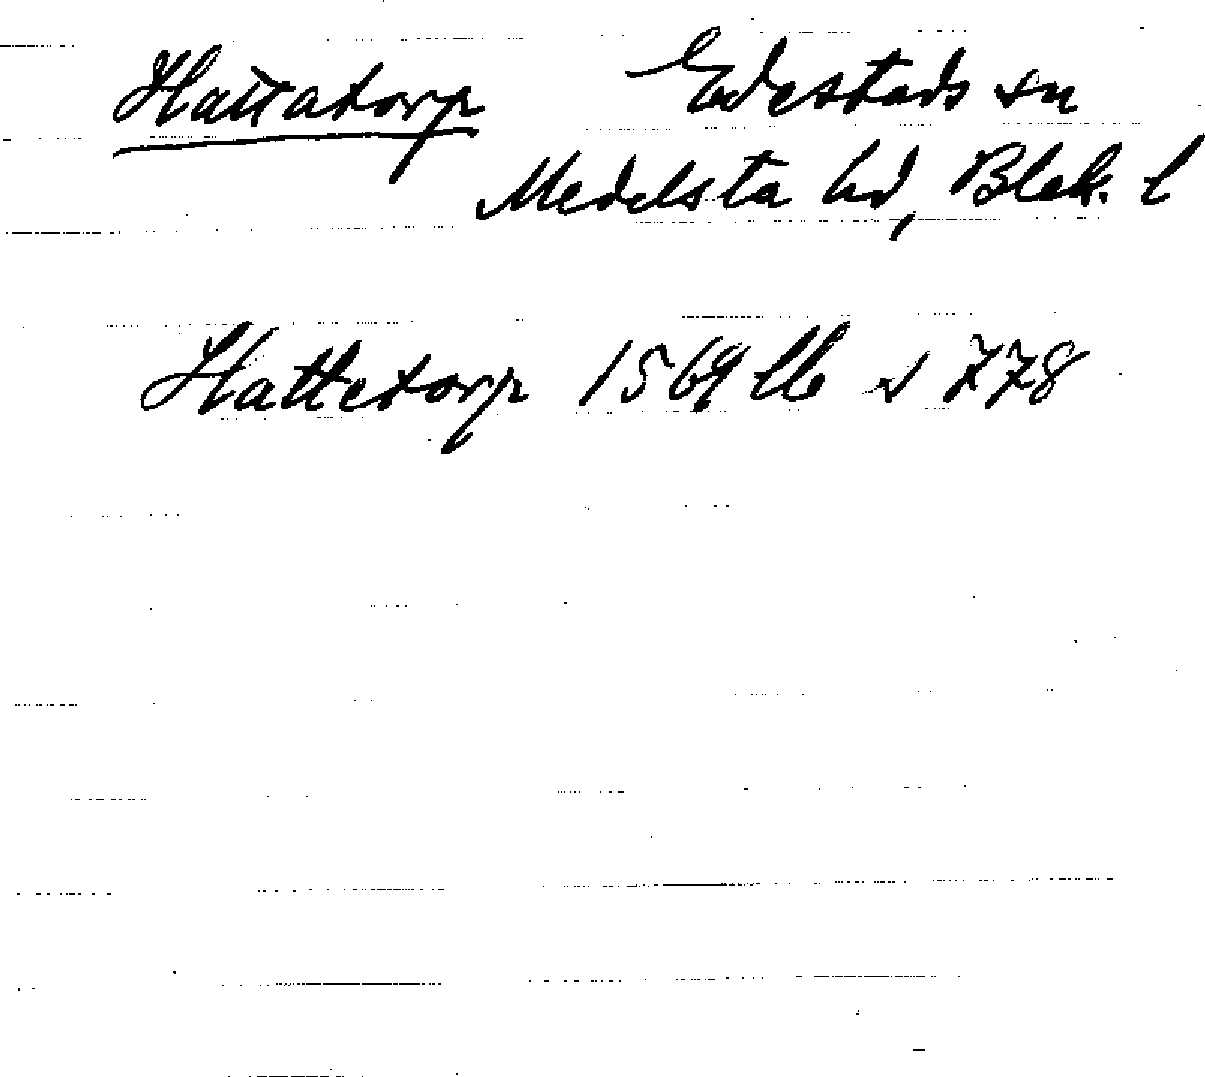 Hattatorp Edestads sn
Medelsta hd, Blek. l
Hattetorp 1569 lb s 778